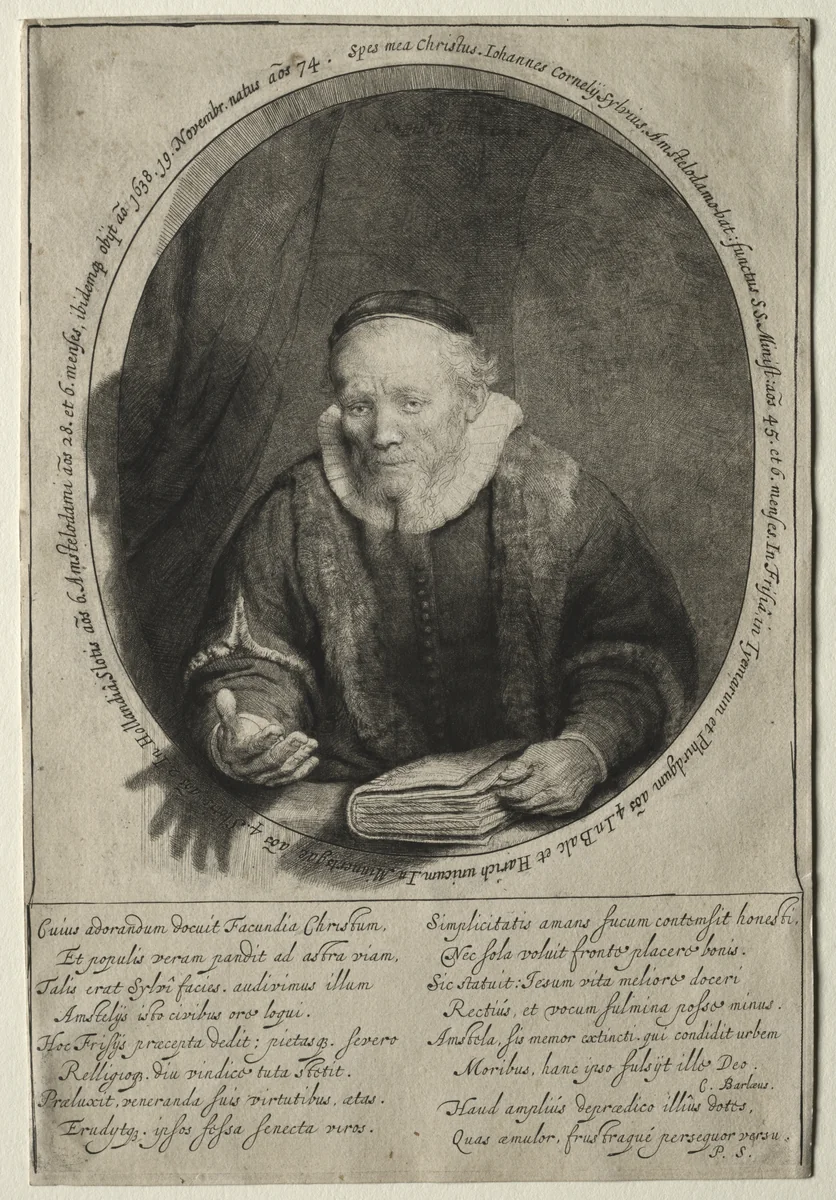 Spes mea Christus. Iohannes Cornelij Sylvius, Amstelodamobat: functus S.S. Minist: aõs 45. et 6. menses. In Frisiâ in Tyemarum et Phirdgum aõs 4. In Balc et Harich unicum. In Minnertsgae, aõs 4. Slotis aõs 6. Amstelodami aõs 28. et 6. menses, ibidemqꝫ obijt ão. 1638. 19. Novembr. natus aõs 74.
Cuius adorandum docuit Facundia Christum,
Et populis veram pandit ad astra viam,
Talis erat Sylvî facies. audivimus illum
Amstelijs isto civibus ore loqui.
Hoc Frisijs præcepta dedit; pietasqꝫ. severo
Relligioqꝫ. diu vindice tuta stetit.
Præluxit, veneranda suis virtutibus, ætas.
Erudytqꝫ. ipsos fessa senecta viros.
Simplicitatis amans fucum contemsit honesti,
Nec sola voluit fronte placere bonis.
Sic statuit: Iesum vita meliore doceri
Rectiùs, et vocum fulmina posse minus.
Amstela, sis memor extincti. qui condidit urbem
Moribus, hanc ipso fulsijt ille Deo.
C. Barlæus.
Haud ampliùs deprædico illîus dotes,
Quas æmulor, frustraqué persequor versu.
P. S.